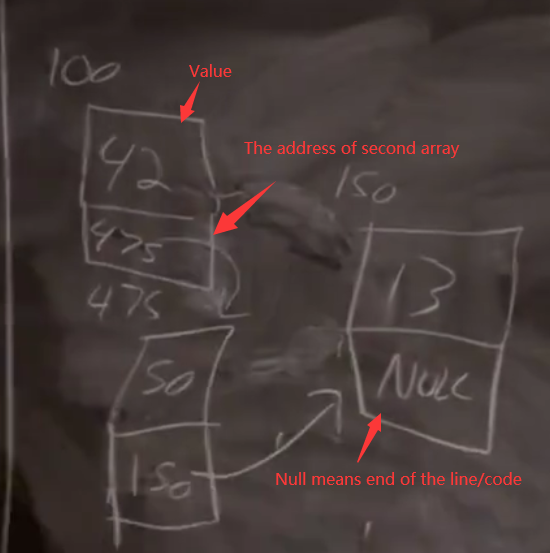 100
Value
42
The address of second array
150
475
13
475
50
NULL
150
Null means end of the line/code